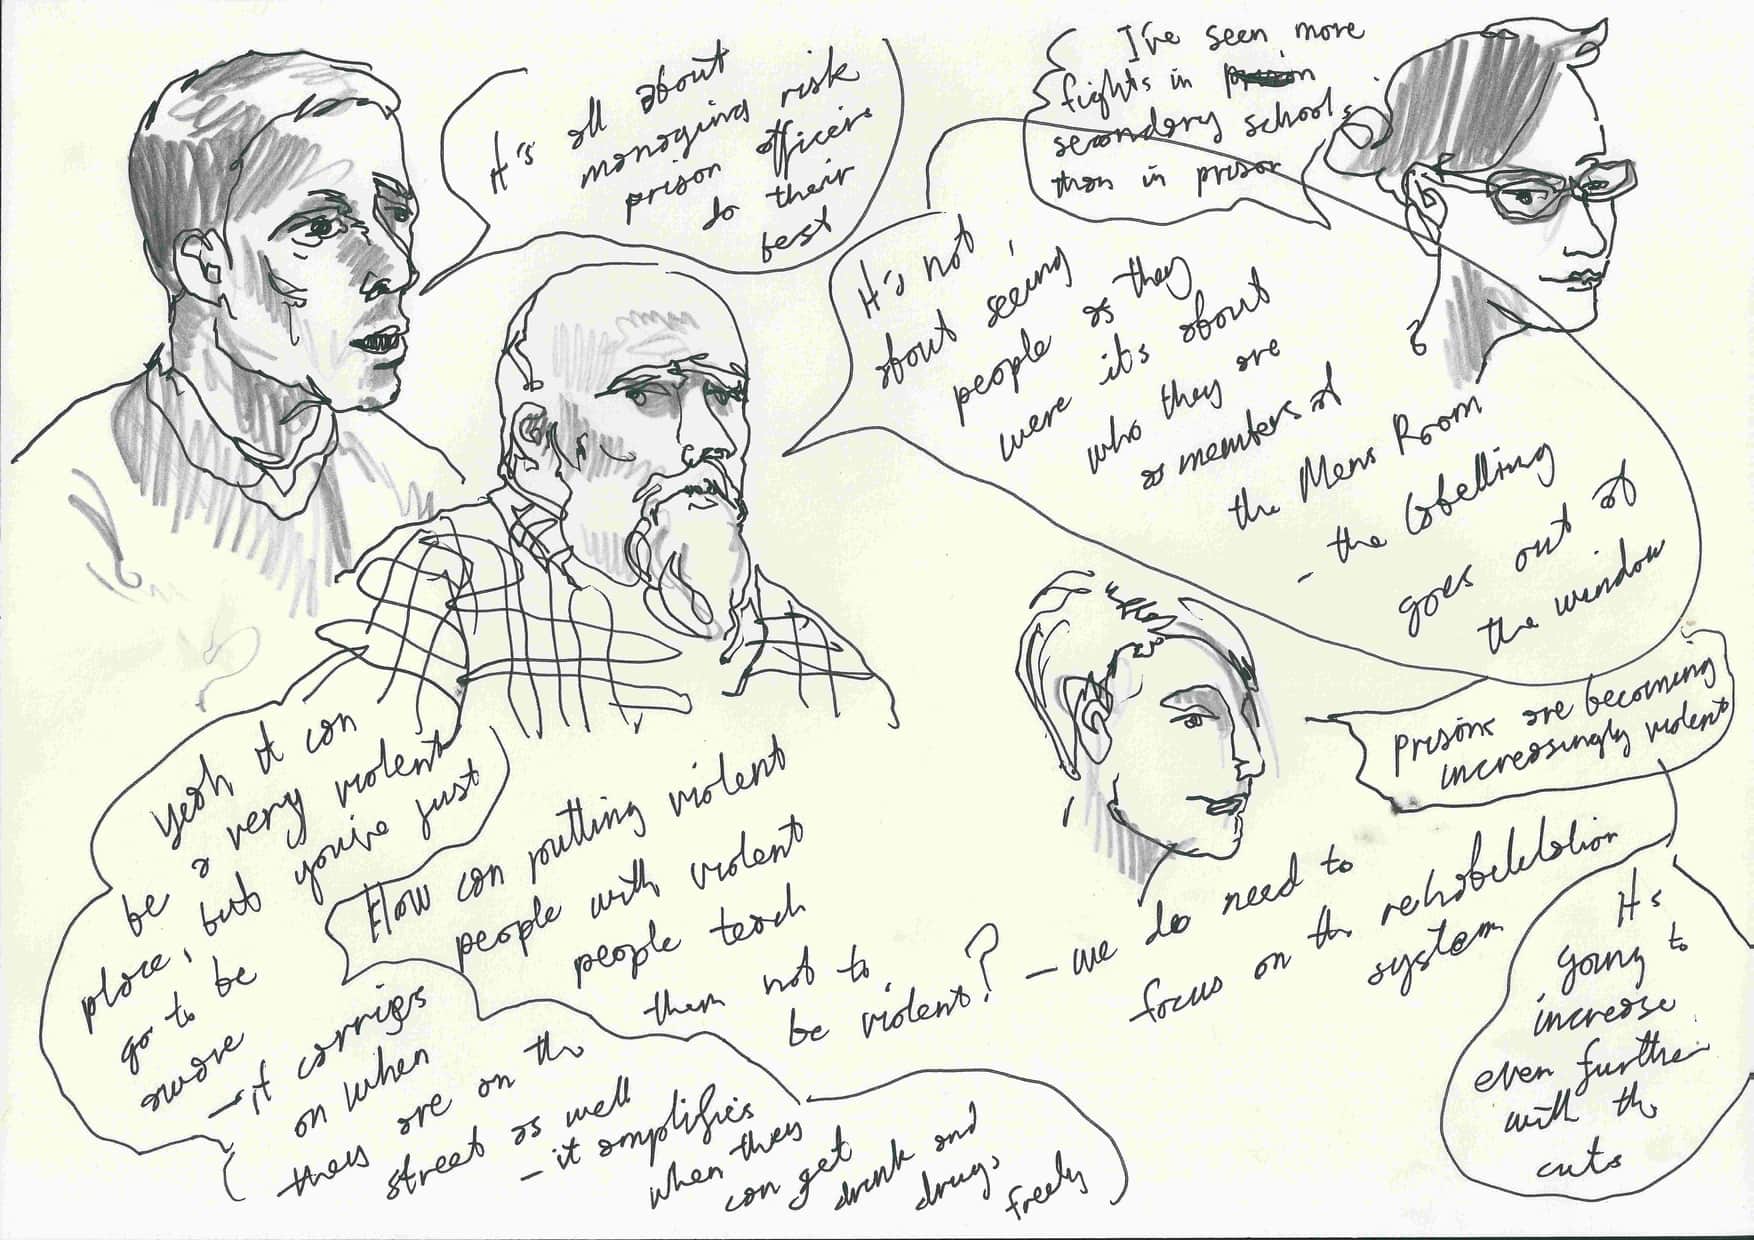 It's all about
managing risk
prison officers
do their
best
I've seen more
fights in prison
secondary schools
than in prison
It's not
about seeing
people as they
were it's about
who they are
as members of
the Mens Room
- the labelling
goes out of
the window
Prisons are becoming
increasingly violent
yeah it can
be a very violent
place, but you've just
go to be
aware
- it carries
on when
they are on the
street as well
- it amplifies
when they
can get
drink and
drugs
freely
How can putting violent
people with violent
people teach
them not to
be violent? - we do need to
focus on the rehabilitation
system
It's
going to
increase
even further
with the
cuts